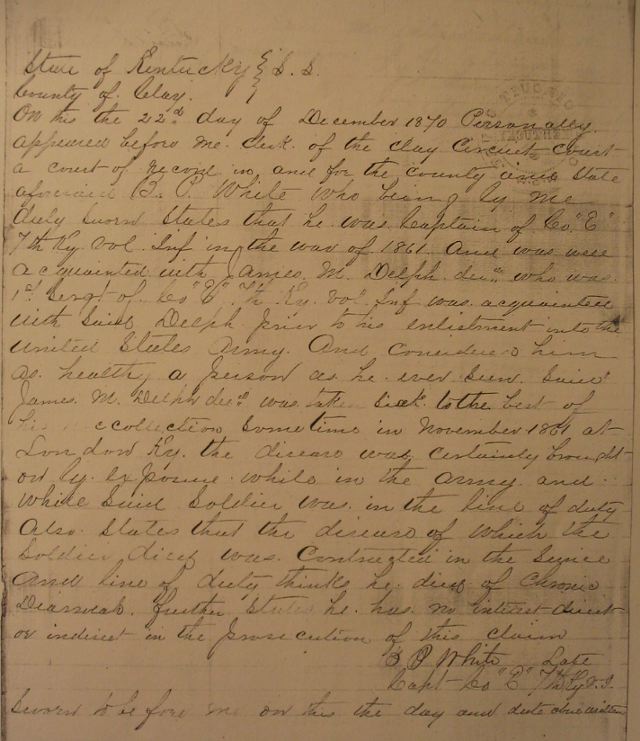 State of Kentucky } S. S.
County of Clay. }
On this the 22nd day of December 1870 Personally
appeared before me Clerk of the Clay Circuit Court
a court of record in and for the county and State
aforesaid B. P. White who being by me
duly sworn States that he was Captain of Co. "E"
7th Ky. Vol. Inf in the war of 1861. And was well
acquainted with James. M. Delph decd. who was
1st Sergt of Co "E" 7th Ky. Vol. Inf was acquainted
with Said Delph prior to his enlistment into the
United States Army. And considered him
as healthy a person as he ever Seen. Said
James. M. Delph decd. was taken Sick to the best of
his recollection Sometime in November 1861 at
London Ky. the disease was certainly brought
on by exposure while in the army. and
while Said Soldier was in the line of duty
Also States that the disease of which the
Soldier died was Contracted in the Service
and line of duty thinks he died of Chronic
Diarrhea. further States he has no interest direct
or indirect in the prosecution of this claim
B P White Late
Capt Co "E" 7th Ky V. I.
Sworn to before me on this the day and date above written